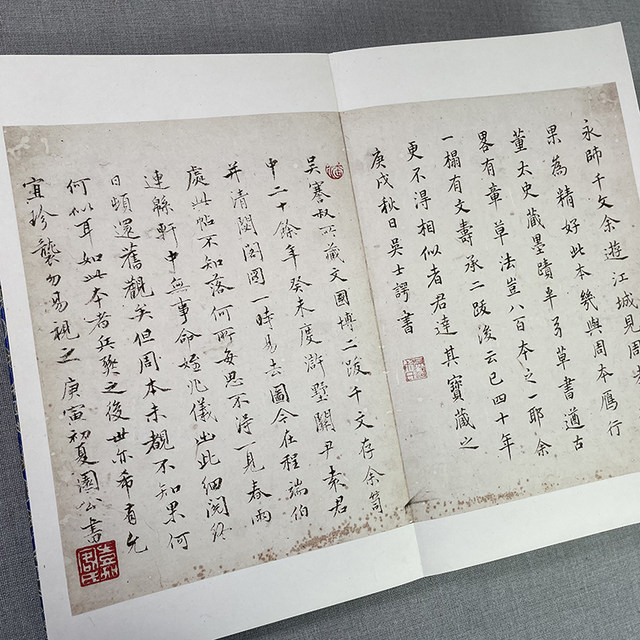 永師千文余遊江城見周
果為精好此本幾與周本鴈行
董太史藏墨蹟卓弓草書道古
畧有章草法豈八百本之一耶余
一榻有文壽承二跋後云已四十年
更不得相似者君達其寶藏之
庚戌秋日吳士諤書
吳謇叔所藏文國博二跋千文存余笥
中二十餘年癸未度滸墅關尹索君
并清閟閣圖一時易去圖今在程端伯
處此帖不知落何所每思不得一見春雨
連緜軒中無事命姪兆儀出此細閱
日頓還舊觀矣但周本未覩不知果何
何似耳如此本者兵燹之後世亦希有
宜珍襲勿易視之 庚寅初夏園公書